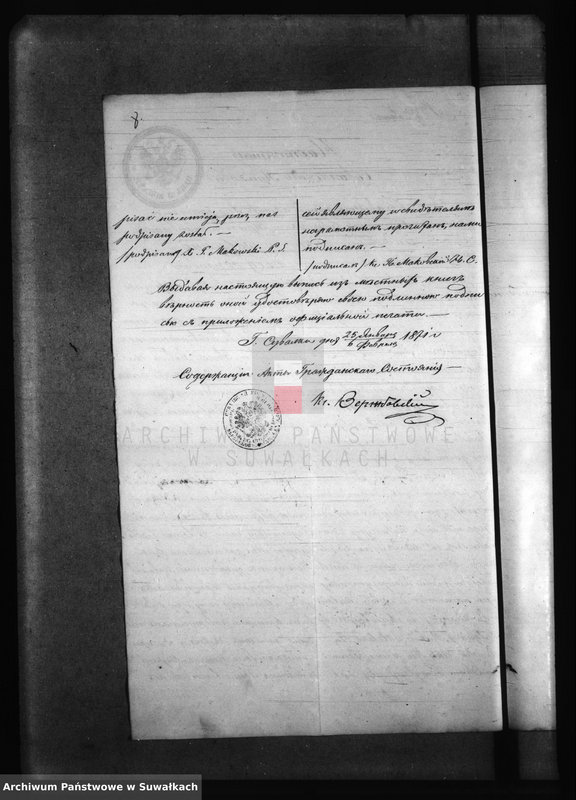 8.
pisać nie umieją, przez nas
podpisany został. —
/podpisano/ X. F. Makowski P. S.
сей являющему и свидетелямъ
неграмотнымъ прочитанъ, нами
подписанъ. —
/подписалъ/ кс. Маковскій
Выдавая настоящую выпись изъ мѣстныхъ книгъ
вѣрность оной удостовѣряю своею подлинною подпи
сью съ приложеніемъ оффиціальной печати. —
Г. Сувалки дня 25 Января / 6 Февраля 1871 г
Содержащій Акты Гражданскаго Состоянія —
Кс. Вержбовскій
ARCHIWUM PAŃSTWOWE
W SUWAŁKACH
Archiwum Państwowe w Suwałkach